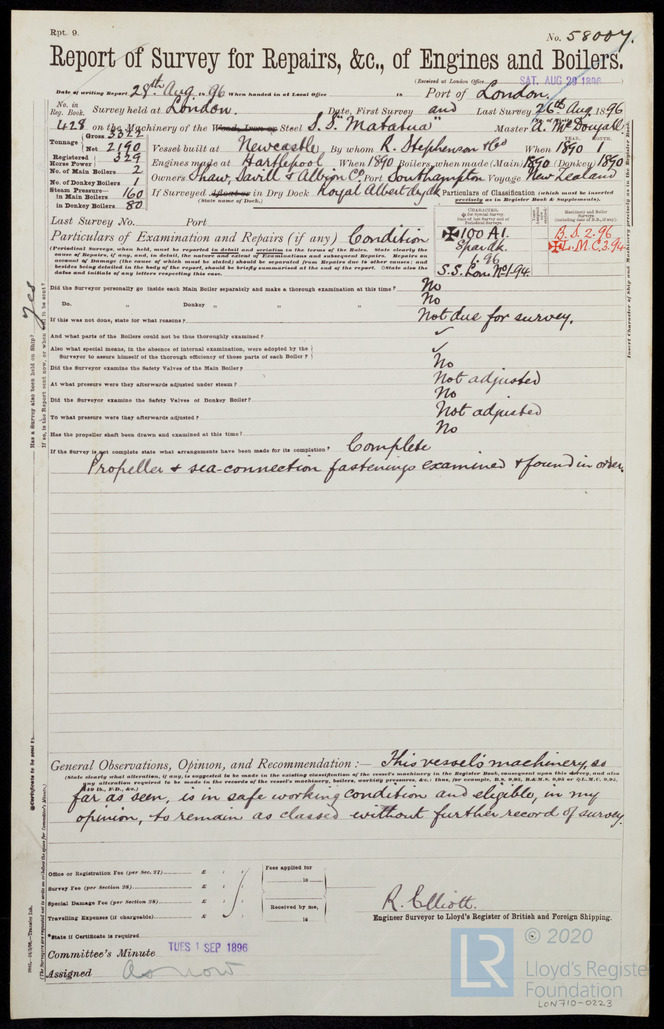 Rpt. 9.
No. 58007.
Report of Survey for Repairs, &c., of Engines and Boilers.
(Received at London Office SAT. AUG 29 1896)
Date of writing Report 28th Aug 1896 When handed in at Local Office 18 Port of London
No. in Reg. Book. Survey held at London. Date, First Survey and Last Survey 26th Aug 1896
428 on the Machinery of the Steel S.S. "Matatua" Master A. McDougall
Tonnage Gross 3322
Net 2190
Vessel built at Newcastle By whom R. Stephenson & Co When 1890
Registered Horse Power 329
Engines made at Hartlepool When 1890 Boilers, when made (Main) 1890 (Donkey) 1890
No. of Main Boilers 2
No. of Donkey Boilers 1
Owners Shaw, Savill & Albion Co. Port Southampton Voyage New Zealand
Steam Pressure in Main Boilers 160
in Donkey Boilers 80
If Surveyed Afloat or in Dry Dock Royal Albert dry dk
(State name of Dock.)
Particulars of Classification (which must be inserted precisely as in Register Book & Supplements).
Last Survey No. Port
Particulars of Examination and Repairs (if any) Condition
100 A1.
Spar dk.
6.96
S.S. Lon. No1-94
B.S. 2.96
L.M.C. 3.94
(Periodical Surveys, when held, must be reported in detail and seriatim in the terms of the Rules. State clearly the cause of Repairs, if any, and, in detail, the nature and extent of Examinations and subsequent Repairs. Repairs on account of Damage (the cause of which must be stated) should be separated from Repairs due to other causes; and besides being detailed in the body of the report, should be briefly summarised at the end of the report. State also the dates and initials of any letters respecting this case.
Did the Surveyor personally go inside each Main Boiler separately and make a thorough examination at this time? No
Do. " Donkey " " " No
If this was not done, state for what reasons? Not due for survey.
And what parts of the Boilers could not be thus thoroughly examined? ✓
Also what special means, in the absence of internal examination, were adopted by the Surveyor to assure himself of the thorough efficiency of those parts of each Boiler? ✓
Did the Surveyor examine the Safety Valves of the Main Boiler? No
At what pressure were they afterwards adjusted under steam? Not adjusted
Did the Surveyor examine the Safety Valves of Donkey Boiler? No
To what pressure were they afterwards adjusted? Not adjusted
Has the propeller shaft been drawn and examined at this time? No
If the Survey is not complete state what arrangements have been made for its completion? Complete
Propeller & sea-connection fastenings examined & found in order.
General Observations, Opinion, and Recommendation:— This vessel's machinery, so
(State clearly what alteration, if any, is suggested to be made in the existing classification of the vessel's machinery in the Register Book, consequent upon this survey, and also any alteration required to be made in the records of the vessel's machinery, boilers, working pressures, &c.: thus, for example,
far as seen, is in safe working condition and eligible, in my
opinion, to remain as classed without further record of survey.
Office or Registration Fee (per Sec. 27) £ : :
Survey Fee (per Section 28) £ : :
Special Damage Fee (per Section 28) £ : :
Travelling Expenses (if chargeable) £ : :
Fees applied for
18
Received by me,
18
R. Elliott.
Engineer Surveyor to Lloyd's Register of British and Foreign Shipping.
*State if Certificate is required
Committee's Minute TUES 1 SEP 1896
Assigned As now
Has a Survey also been held on Ship? Yes
© 2020
LR
Lloyd's Register
Foundation
LON710-0223